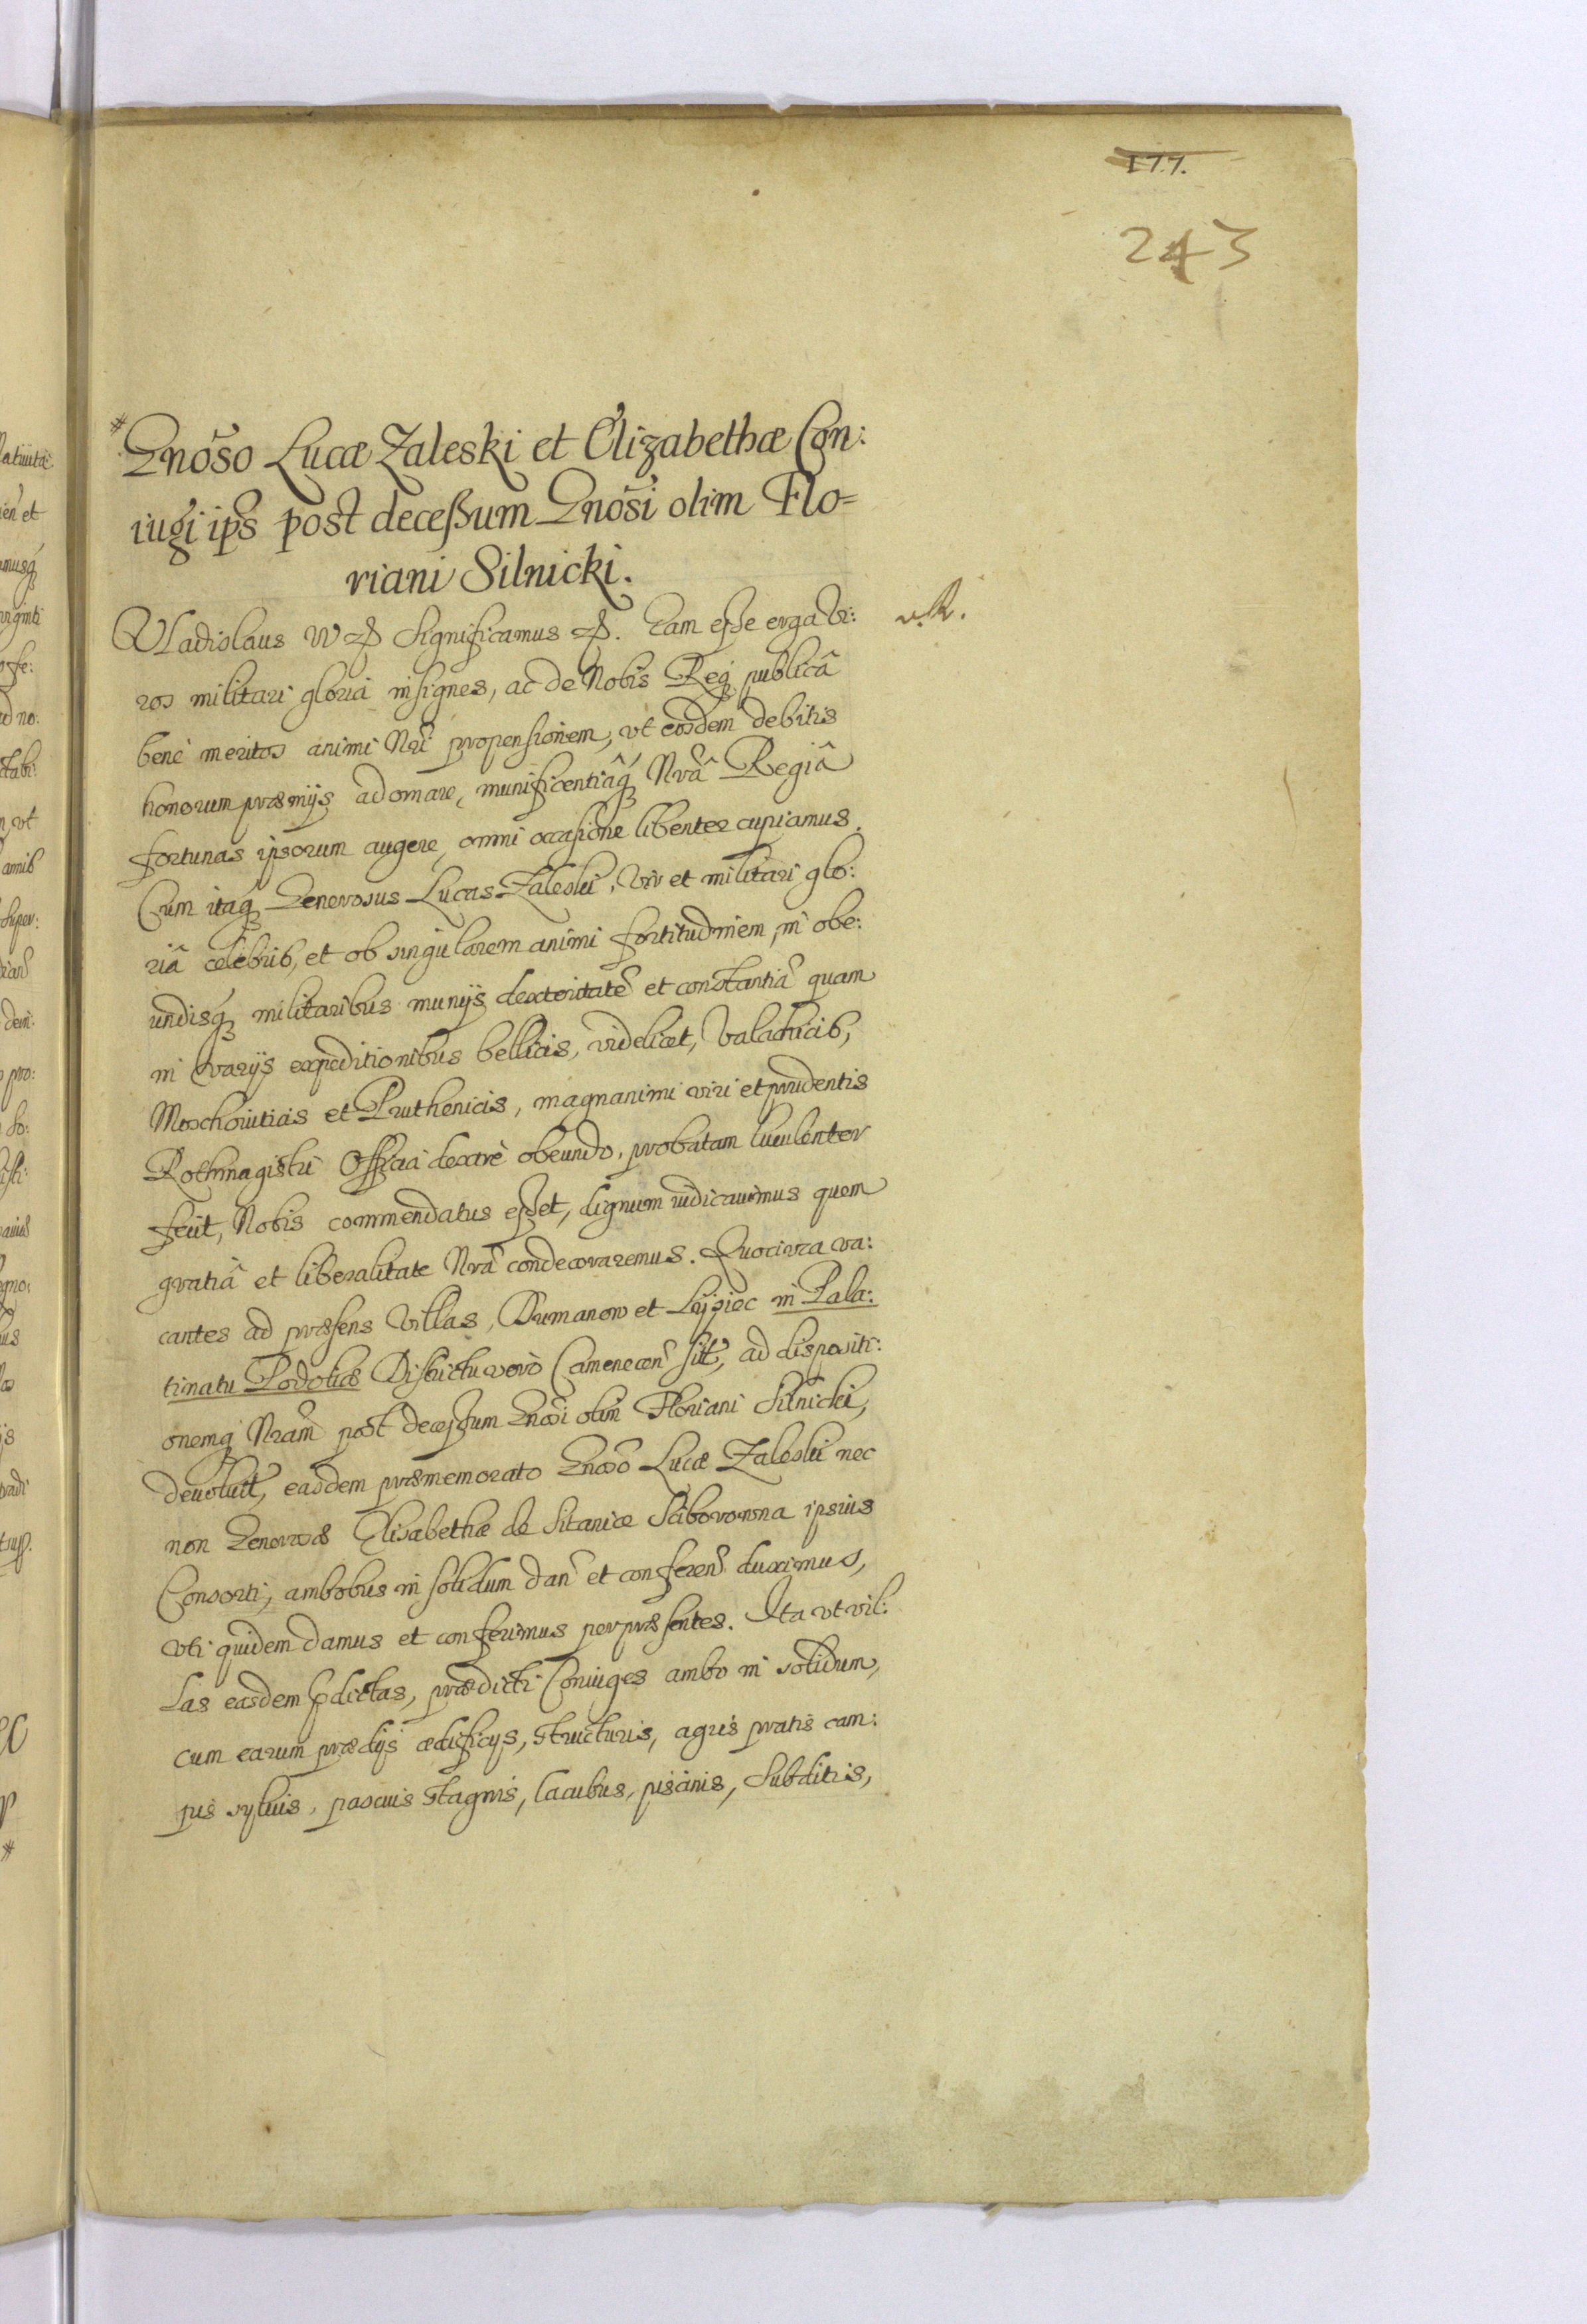 177.
243
# Gnoso Lucæ Zaleski et Elizabethæ Con:
iugi ips post decessum Gnosi olim Flo=
riani Silnicki.
Wladislaus IV etc Significamus etc. Eam esse erga Vi:
ros militari gloriâ insignes, ac de Nobis Req publicâ
benè meritos animi Nri propensionem, vt eosdem debitis
honorum præmijs adornare, munificentiâq Nrâ Regiâ
fortunas ipsorum augere, omni occasione libenter cupiamus.
Cum itaq Generosus Lucas Zaleski, Vir et militari glo:
riâ celebris, et ob singularem animi fortitudinem, in obe:
undisq militaribus munijs dexteritate et constantia quam
in varijs expeditionibus bellicis, videlicet, Valachicis,
Moschouiticis et Pruthenicis, magnanimi viri et prudentis
Rothmagistri Officia dextrè obeundo, probatam luculenter
fecit, Nobis commendatus esset, dignum iudicauimus quem
gratiâ et liberalitate Nrâ condecoraremus. Quocirca va:
cantes ad præsens Villas, Dumanow et Lijpiec in Pala:
tinatu Podoliæ Districtu verò Camenecen sit, ad dispositi:
onemq Nram post decessum Gnosi olim Floriani Silnicki,
deuolut, easdem præmemorato Gnoso Lucæ Zaleski nec
non Generosæ Elisabethæ de Sitanice Sciborowna ipsius
Consorti, ambobus in solidum dan et conferen duximus,
vti quidem damus et conferimus per præsentes. Ita vt vil:
las easdem pdictas, prædicti Coniuges ambo in solidum,
cum earum prædijs ædificijs, structuris, agris pratis cam:
pis syluis, pascuis stagnis, lacubus, piscinis, subditis,